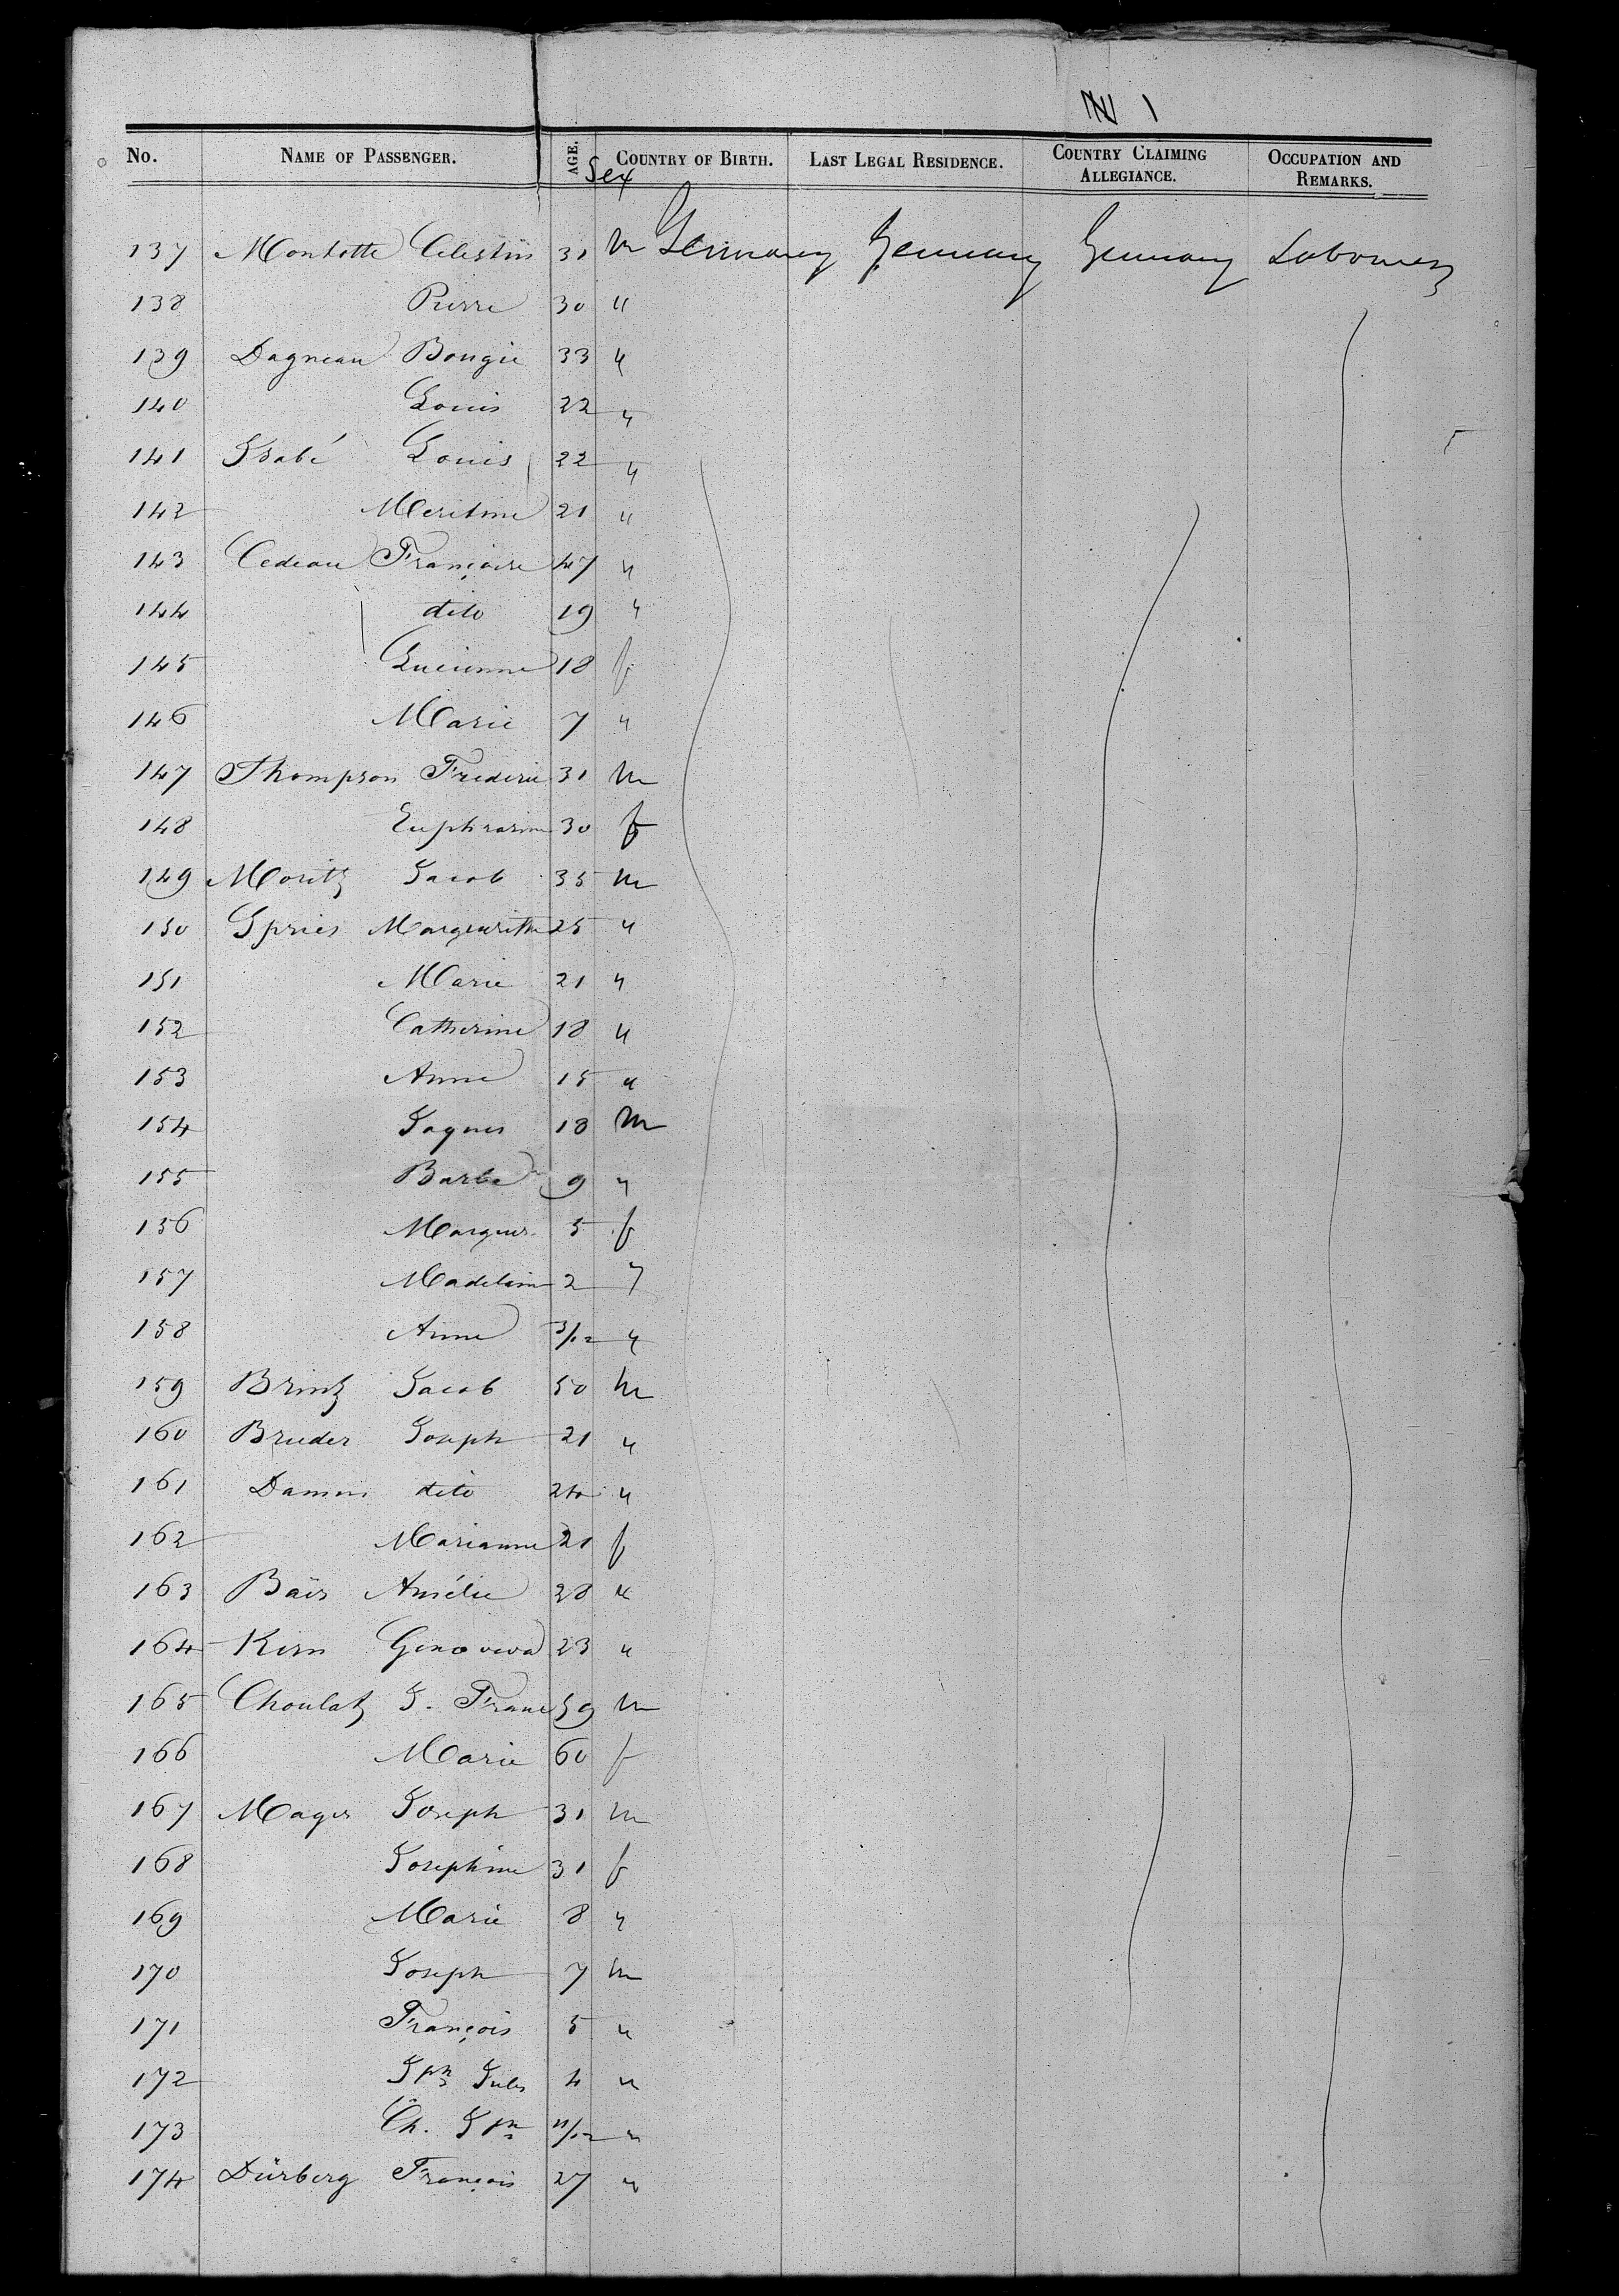 N 1
No. NAME OF PASSENGER. AGE. Sex COUNTRY OF BIRTH. LAST LEGAL RESIDENCE. COUNTRY CLAIMING ALLEGIANCE. OCCUPATION AND REMARKS.
137 Montotte Celestin 31 m Germany Germany Germany Labourers
138 Pierre 30 "
139 Dagneau Bougie 33 "
140 Louis 22 "
141 Isabé Louis 22 "
142 21 "
143 Cedeau Françoise 47 "
144 dito 19 "
145 Lucienne 18 f
146 Marie 7 "
147 Thompson Frederic 31 m
148 Euphrasine 30 f
149 Moritz Jacob 35 m
150 Spries Marguerithe 25 "
151 Marie 21 "
152 Catherine 18 "
153 Anne 15 "
154 Jaques 18 m
155 Barbe 9 "
156 Marguer. 5 f
157 Madelaine 2 "
158 Anne 3/12 "
159 Brintz Jacob 50 m
160 Bruder Joseph 21 "
161 Damin dito 24 "
162 Marianne 21 f
163 Baïr Amélie 28 "
164 Kirn Genoveva 23 "
165 Choulatz J. Franc 59 m
166 Marie 60 f
167 Mager Joseph 31 m
168 Josephine 31 f
169 Marie 8 "
170 Joseph 7 m
171 François 5 "
172 Jph Jules 4 "
173 Ch. Jph 11/12 "
174 Dürberg François 27 "